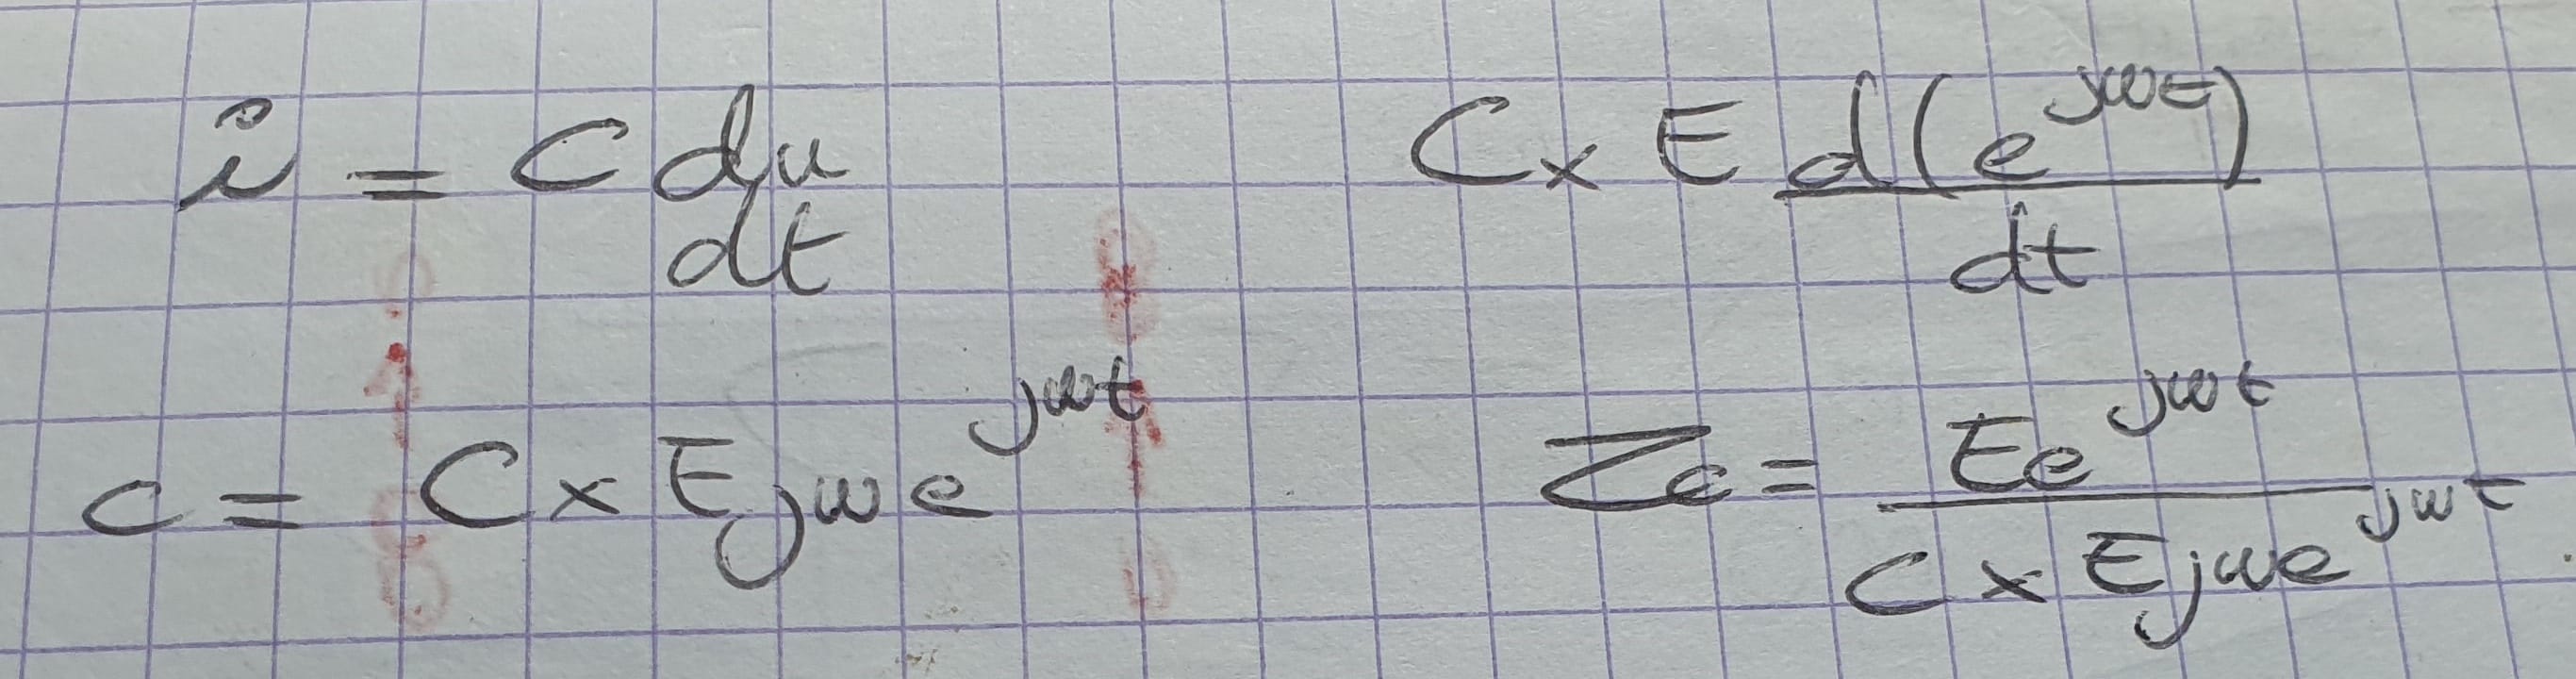 i = C du/dt    C x E d(e^jωt)/dt
c = C x E jω e^jωt    Zc = Ee^jωt / C x E jωe^jωt